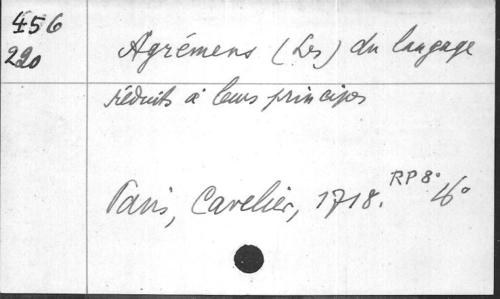 456
220
Agrémens (Les) du langage
réduits à leurs principes
Paris, Cavelier, 1718. RP 8°